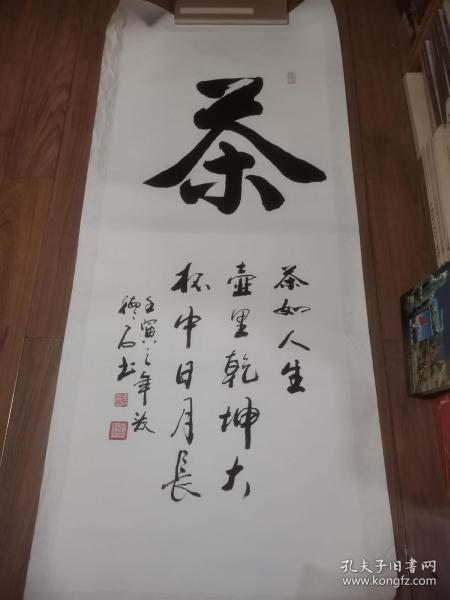 茶
茶如人生
壶里乾坤大
杯中日月長
壬寅之年放
德石书
孔夫子旧书网
www.kongfz.com